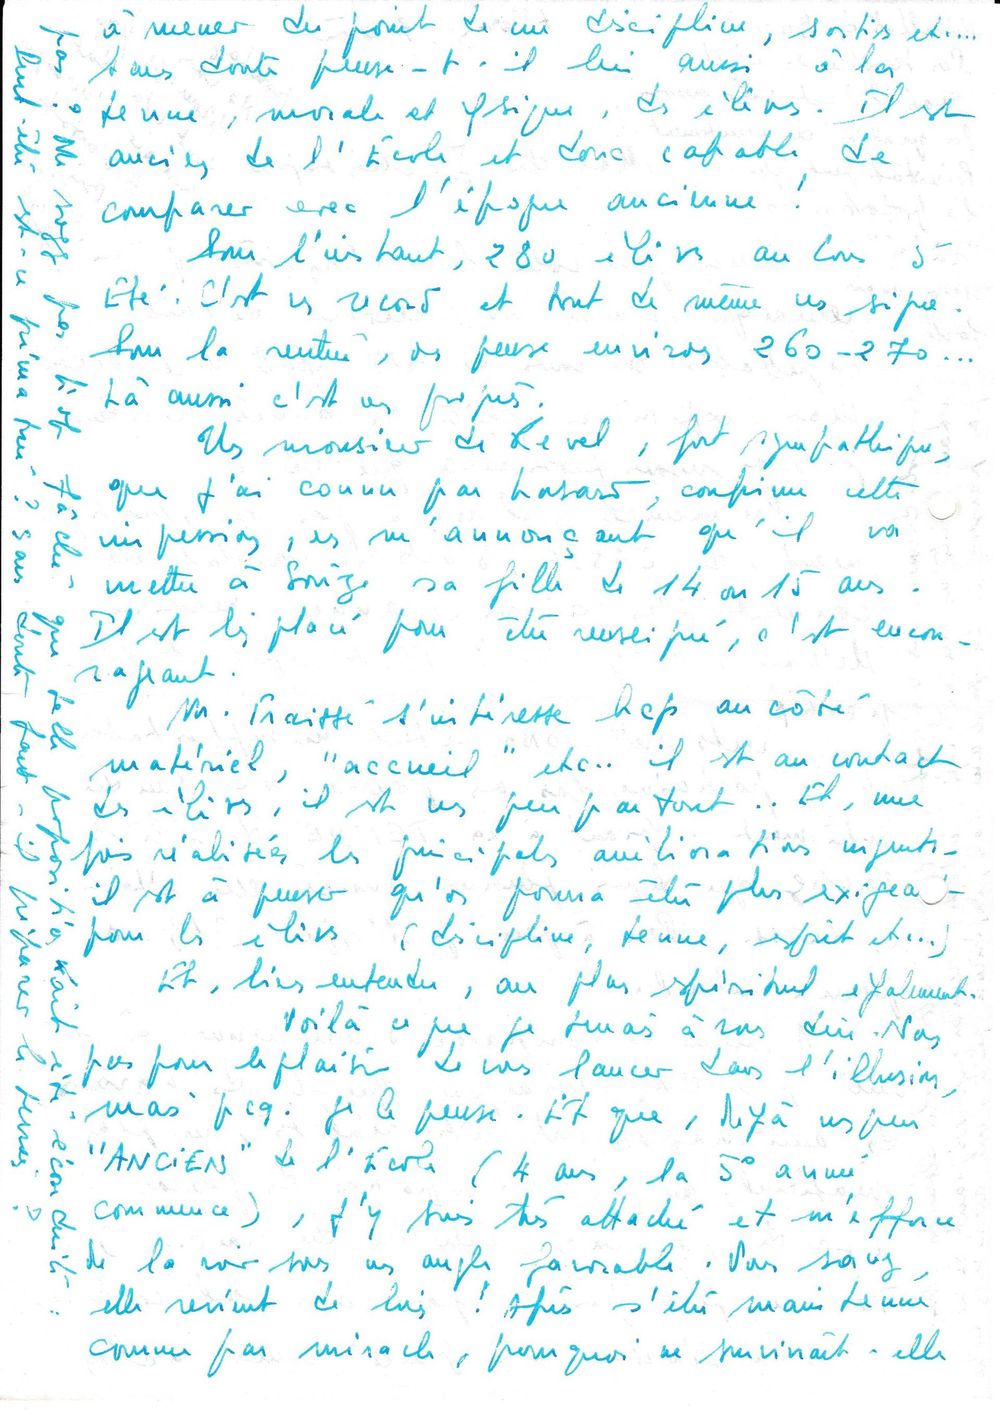 à mener du point de vue discipline, sorties etc....
Sans doute pense-t-il lui aussi à la
tenue, morale et physique, des élèves. Il est
ancien de l'École et donc capable de
comparer avec l'époque ancienne !
Pour l'instant, 280 élèves au Cours d'
Eté. C'est un record et tout de même un signe.
Pour la rentrée, on pense environ 260-270...
Là aussi c'est un progrès.
Un monsieur de Revel, fort sympathique,
que j'ai connu par hasard, confirme cette
impression, en m'annonçant qu'il va
mettre à Sorèze sa fille de 14 ou 15 ans.
Il est bien placé pour être renseigné, c'est encou-
rageant.
M. Fraissé s'intéresse bcp au côté
matériel, "accueil" etc.. il est au contact
des élèves, il est un peu partout.. Et, une
fois réalisées les principales améliorations urgentes
il est à penser qu'on pourra être plus exigeant
pour les élèves (discipline, tenue, esprit etc...)
Et, bien entendu, au plan spirituel également.
Voilà ce que je tenais à vous dire. Non
pas pour le plaisir de vous lancer dans l'illusion,
mais pcq. je le pense. Et que, déjà un peu
"ANCIEN" de l'École (4 ans, la 5° année
commence), j'y suis très attaché et m'efforce
de la voir sous un angle favorable. Vous savez,
elle revient de loin ! Après s'être maintenue
comme par miracle, pourquoi ne survivrait-elle
pas ? Ne soyez pas trop fâché que telle proposition ait été éconduite..
Peut-être est-ce prématuré ? Sans doute faut-il préparer le terrain ?